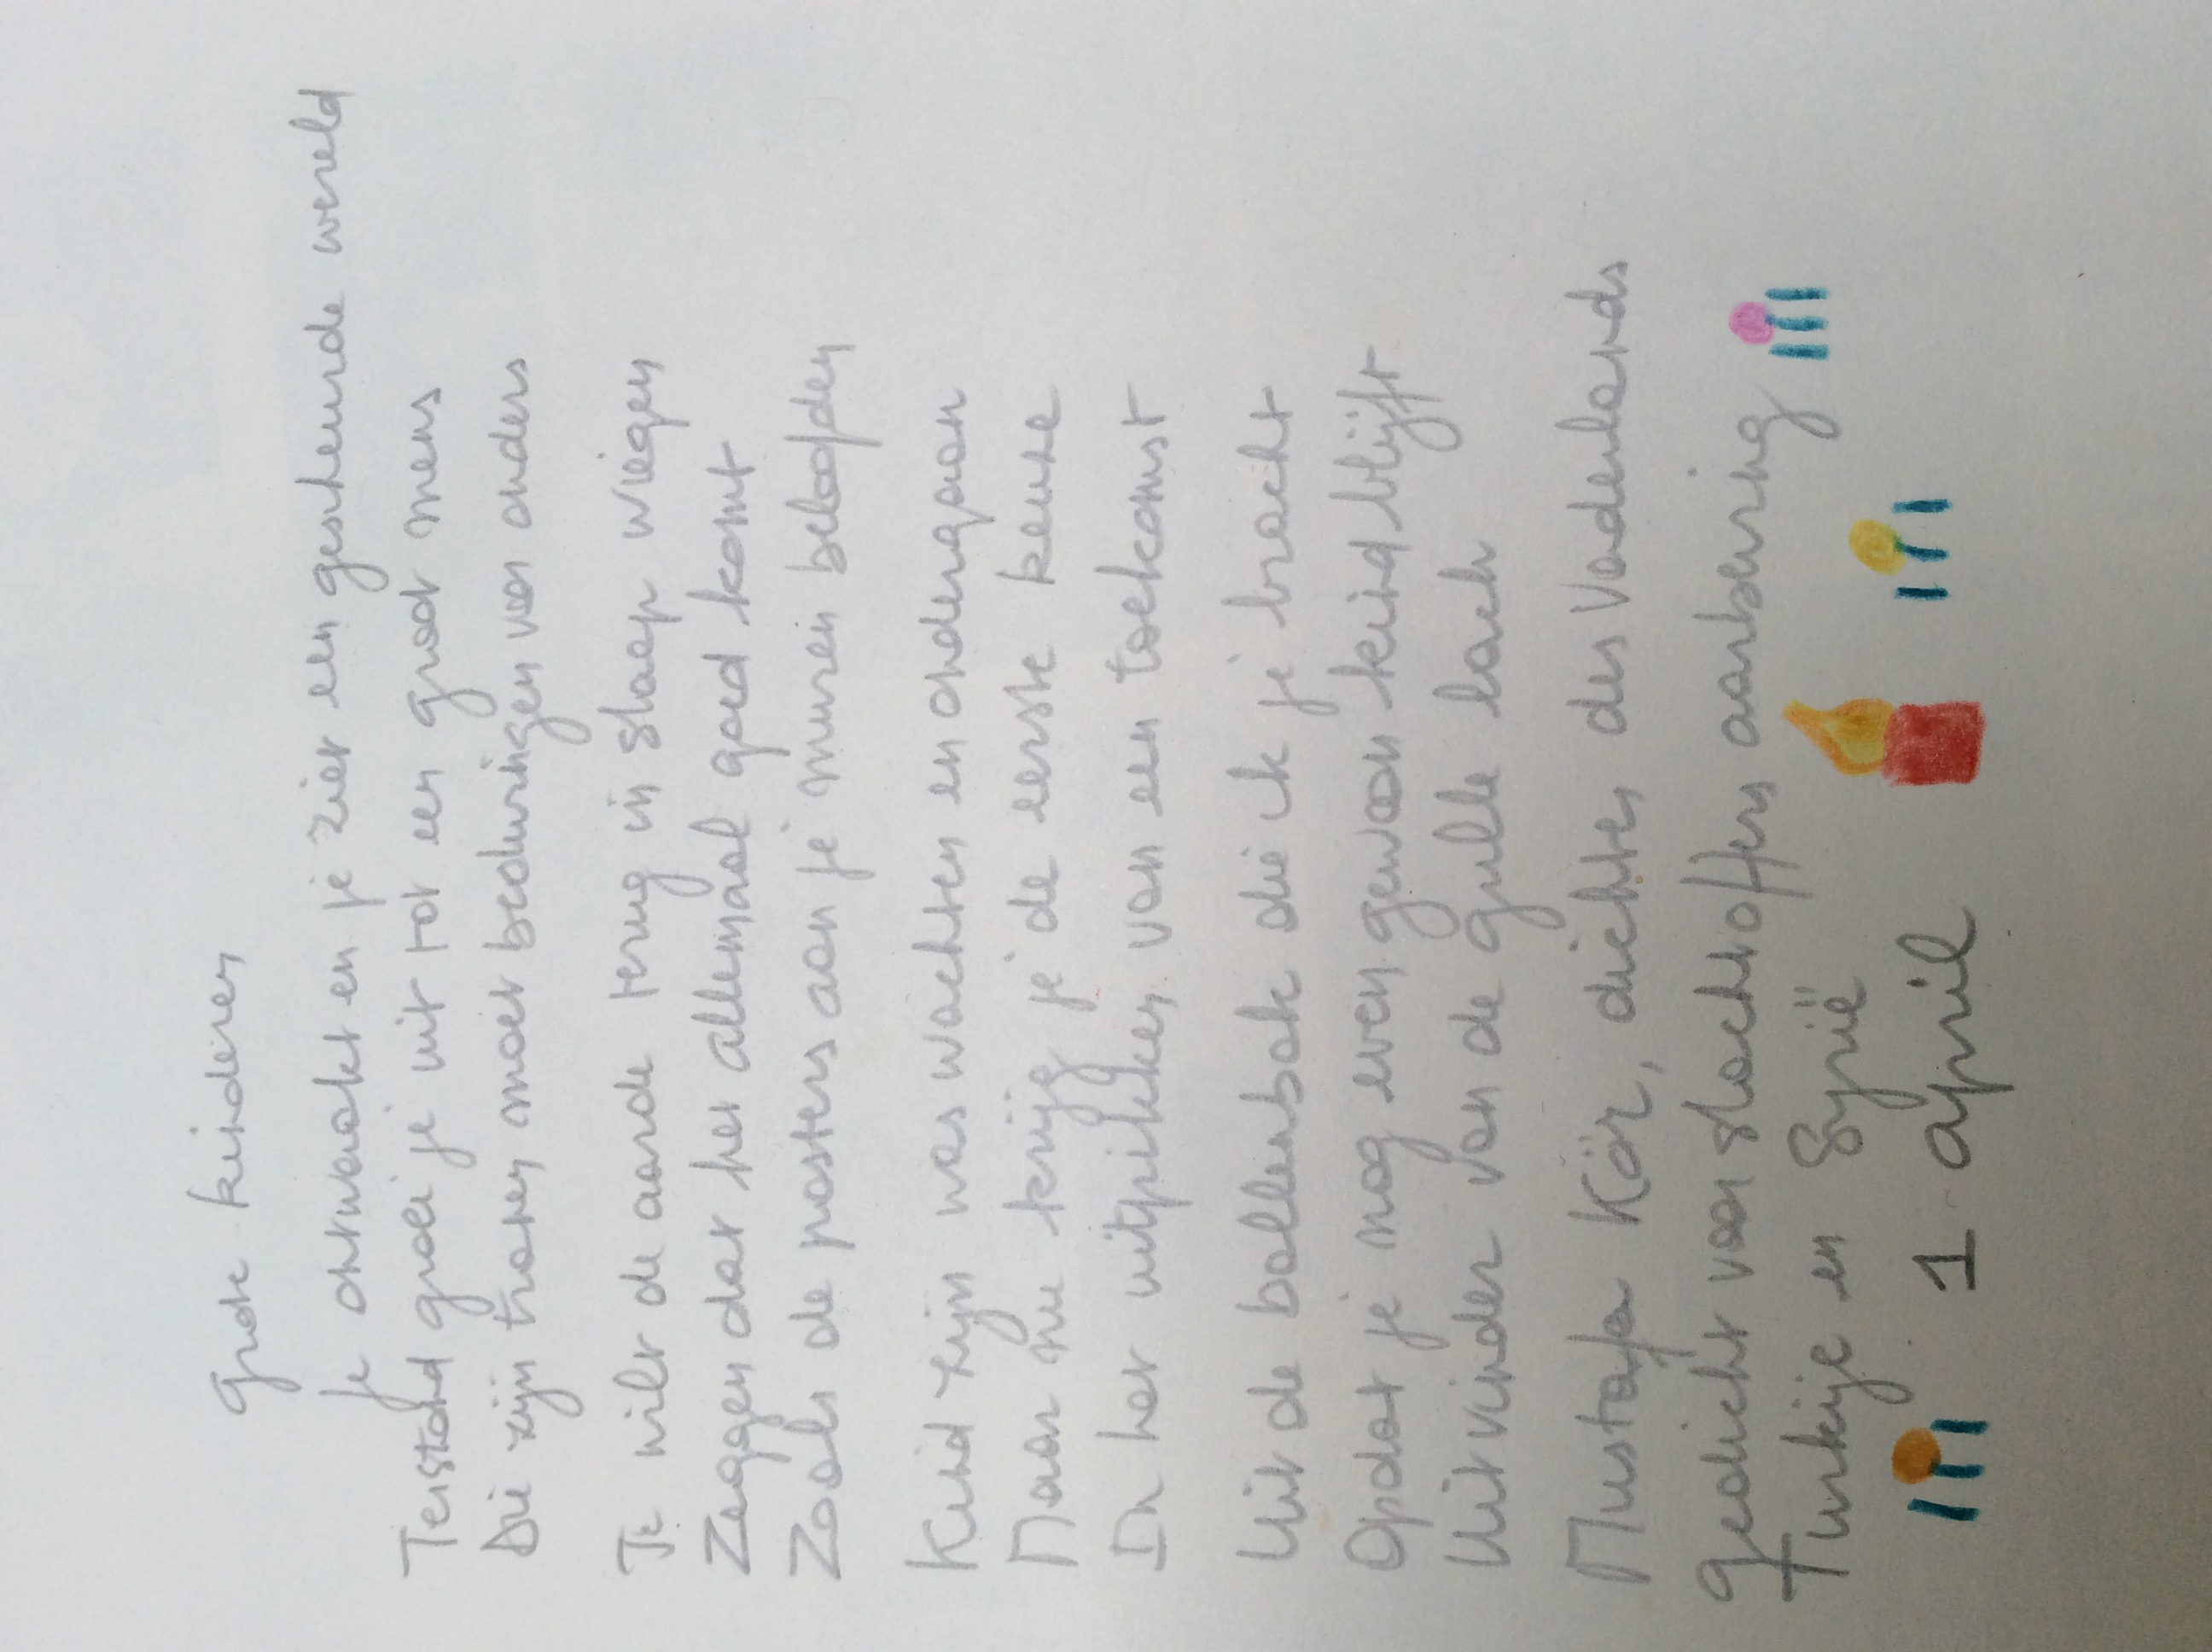 Grote kinderen
Je ontwaakt en je ziet een gescheurde wereld
Terstond groei je uit tot een groot mens
Die zijn tranen moet bedwingen van onders
Je wilt de aarde terug in slaap wiegen
Zeggen dat het allemaal goed komt
Zoals de posters aan je muren beloofden
Kind zijn was wachten en ondergaan
Maar nu krijg je de eerste keuze
In het uitpikken van een toekomst
Uit de ballenbak die ik je bracht
Opdat je nog even gewoon keind blijft
Uitvinder van de gulle lach
Mustafa Kör, dichter des Vaderlands
gedicht voor slachtoffers aardbeving
Turkije en Syrië
1 april